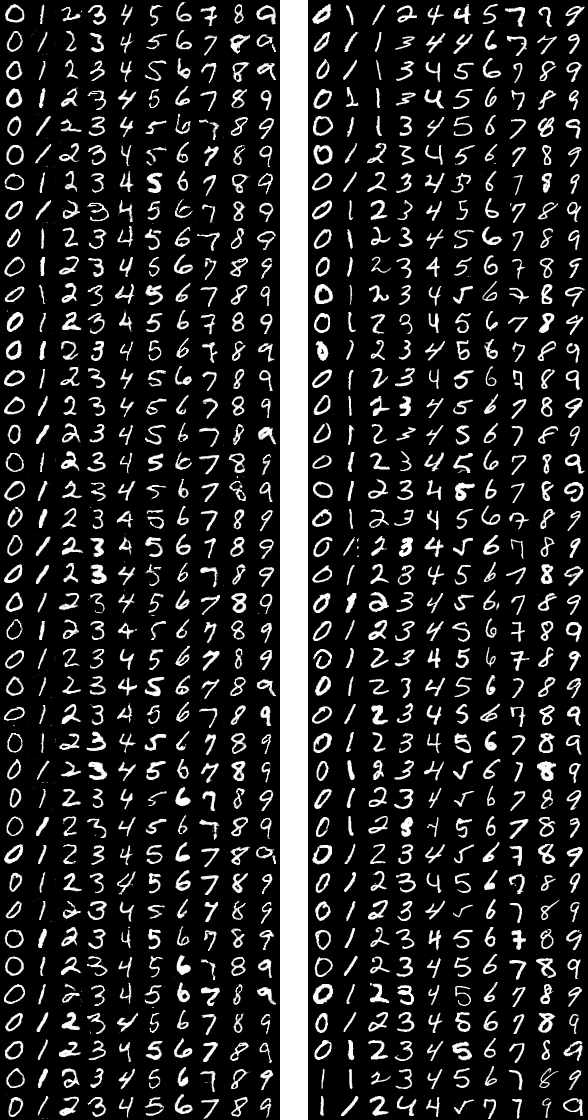 0 1 2 3 4 5 6 7 8 9
0 1 2 3 4 5 6 7 8 9
0 1 2 3 4 5 6 7 8 9
0 1 2 3 4 5 6 7 8 9
0 1 2 3 4 5 6 7 8 9
0 1 2 3 4 5 6 7 8 9
0 1 2 3 4 5 6 7 8 9
0 1 2 3 4 5 6 7 8 9
0 1 2 3 4 5 6 7 8 9
0 1 2 3 4 5 6 7 8 9
0 1 2 3 4 5 6 7 8 9
0 1 2 3 4 5 6 7 8 9
0 1 2 3 4 5 6 7 8 9
0 1 2 3 4 5 6 7 8 9
0 1 2 3 4 5 6 7 8 9
0 1 2 3 4 5 6 7 8 9
0 1 2 3 4 5 6 7 8 9
0 1 2 3 4 5 6 7 8 9
0 1 2 3 4 5 6 7 8 9
0 1 2 3 4 5 6 7 8 9
0 1 2 3 4 5 6 7 8 9
0 1 2 3 4 5 6 7 8 9
0 1 2 3 4 5 6 7 8 9
0 1 2 3 4 5 6 7 8 9
0 1 2 3 4 5 6 7 8 9
0 1 2 3 4 5 6 7 8 9
0 1 2 3 4 5 6 7 8 9
0 1 2 3 4 5 6 7 8 9
0 1 2 3 4 5 6 7 8 9
0 1 2 3 4 5 6 7 8 9
0 1 2 3 4 5 6 7 8 9
0 1 2 3 4 5 6 7 8 9
0 1 2 3 4 5 6 7 8 9
0 1 2 3 4 5 6 7 8 9
0 1 2 3 4 5 6 7 8 9
0 1 2 3 4 5 6 7 8 9
0 1 2 3 4 5 6 7 8 9
0 1 2 3 4 5 6 7 8 9
0 1 2 3 4 5 6 7 8 9
0 1 2 3 4 5 6 7 8 9
0 1 1 2 4 4 5 7 9
0 1 1 3 4 4 6 7 7 9
0 1 1 3 4 5 6 7 8 9
0 1 1 3 4 5 6 7 8 9
0 1 1 3 4 5 6 7 8 9
0 1 2 3 4 5 6 7 8 9
0 1 2 3 4 5 6 7 8 9
0 1 2 3 4 5 6 7 8 9
0 1 2 3 4 5 6 7 8 9
0 1 2 3 4 5 6 7 8 9
0 1 2 3 4 5 6 7 8 9
0 1 2 3 4 5 6 7 8 9
0 1 2 3 4 5 6 7 8 9
0 1 2 3 4 5 6 7 8 9
0 1 2 3 4 5 6 7 8 9
0 1 2 3 4 5 6 7 8 9
0 1 2 3 4 5 6 7 8 9
0 1 2 3 4 5 6 7 8 9
0 1 2 3 4 5 6 7 8 9
0 1 2 3 4 5 6 7 8 9
0 1 2 8 4 5 6 7 8 9
0 1 2 3 4 5 6 7 8 9
0 1 2 3 4 5 6 7 8 9
0 1 2 3 4 5 6 7 8 9
0 1 2 3 4 5 6 7 8 9
0 1 2 3 4 5 6 7 8 9
0 1 2 3 4 5 6 7 8 9
0 1 2 3 4 5 6 7 8 9
0 1 2 3 4 5 6 7 8 9
0 1 2 8 4 5 6 7 8 9
0 1 2 3 4 5 6 7 8 9
0 1 2 3 4 5 6 7 8 9
0 1 2 3 4 5 6 7 8 9
0 1 2 3 4 5 6 7 8 9
0 1 2 3 4 5 6 7 8 9
0 1 2 3 4 5 6 7 8 9
0 1 2 3 4 5 6 7 8 9
0 1 2 3 4 5 6 7 8 9
1 1 2 3 4 5 6 7 8 9
1 1 2 4 4 5 7 7 9 0